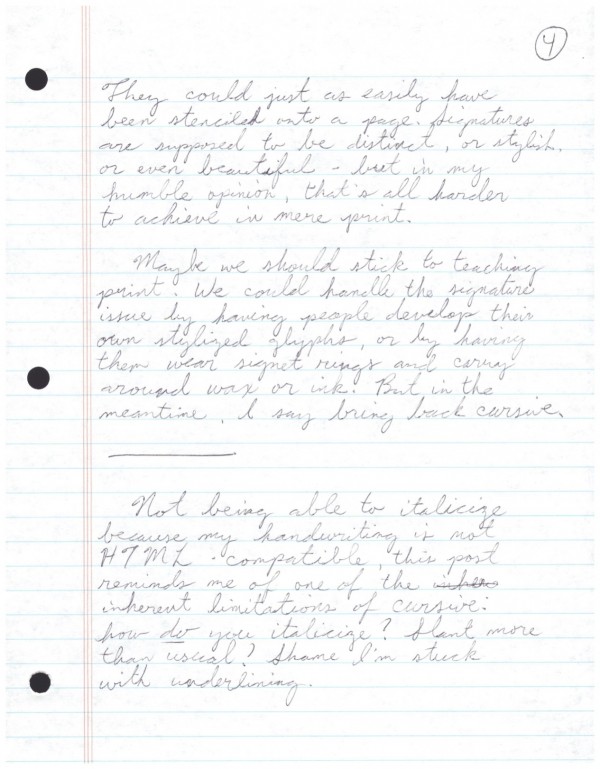 4
They could just as easily have
been stenciled onto a page. Signatures
are supposed to be distinct, or stylish,
or even beautiful - but in my
humble opinion, that's all harder
to achieve in mere print.
Maybe we should stick to teaching
print. We could handle the signature
issue by having people develop their
own stylized glyphs, or by having
them wear signet rings and carry
around wax or ink. But in the
meantime, I say bring back cursive.
Not being able to italicize
because my handwriting is not
HTML-compatible, this post
reminds me of one of the inhere
inherent limitations of cursive:
how do you italicize? Slant more
than usual? Shame I'm stuck
with underlining.